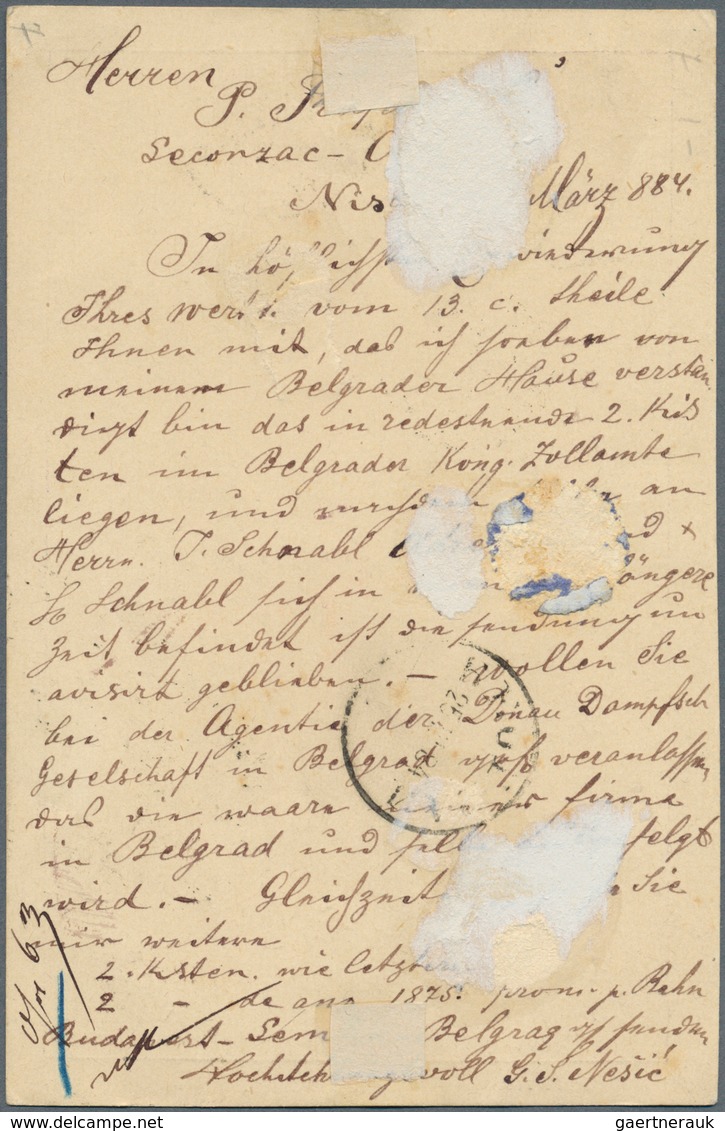 Herren
P.
Seconzac-
Nis März 884.
In höflichster
Ihres wert. vom 13. c. theile
Ihnen mit, das ich soeben von
meinem Belgrader Hause verstän
digt bin das in redestehende 2. Kis
ten im Belgrader Köng. Zollamte
liegen, und nachdem an
Herrn. J. Schnabl
Schnabl sich in längere
Zeit befindet ist die sendung un
avisirt geblieben. – wollen Sie
bei der Agentie der Donau Dampfsch
Gesellschaft in Belgrad veranlassen
das die waare meiner firma
in Belgrad und folgt
wird. – Gleichzeit Sie
mir weitere
2. Kisten. wie letzter
2 – 1875. prom. p. Bahn
Budapest – Sem Belgrad senden
Hochachtungsvoll G. S. Nešić
63
gaertnerauk